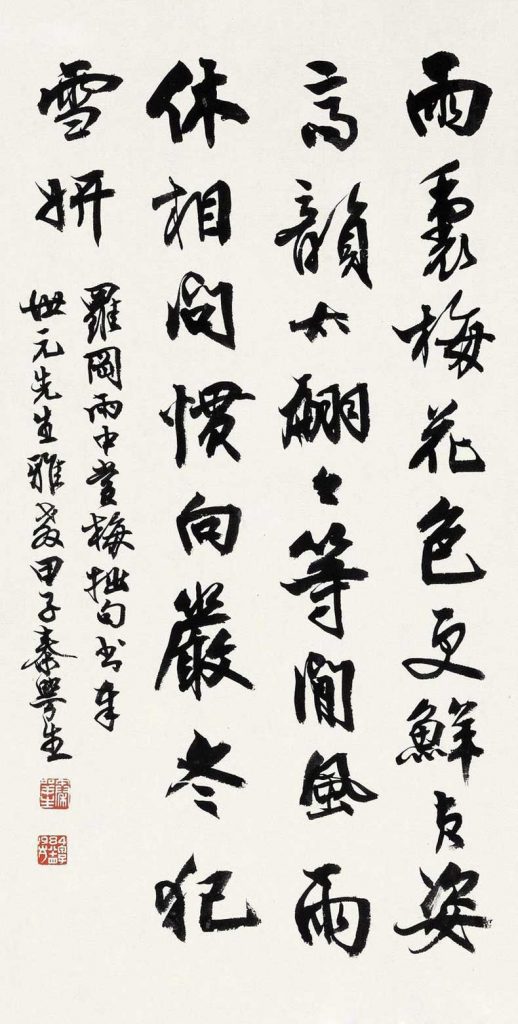 雨裏梅花色更鮮貞姿
高韻太翩々等閒風雨
休相問慣向嚴冬犯
雪妍
羅岡雨中賞梅拙句書奉
世元先生雅教甲子秦咢生